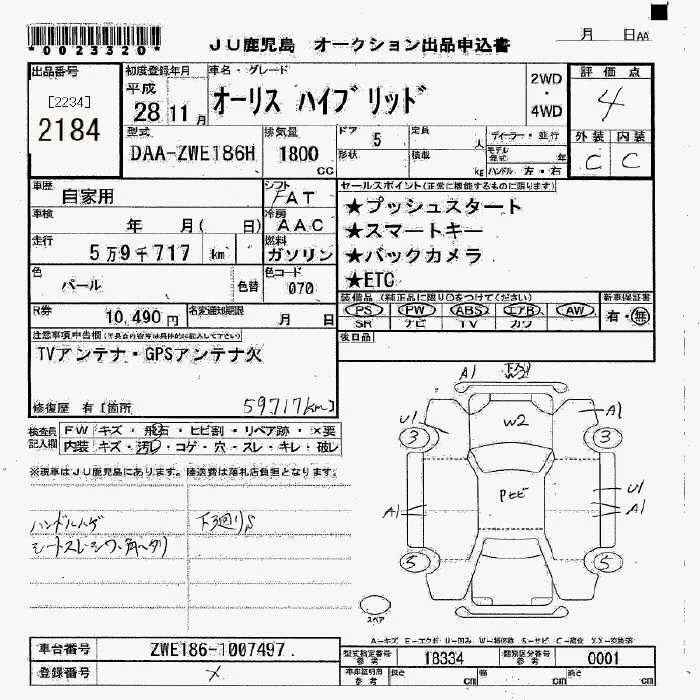 *0023320*
JU鹿児島 オークション出品申込書
月 日AA
出品番号
[2234]
2184
初度登録年月
平成
28 11月
車名・グレード
オーリス ハイブリッド
2WD
・
4WD
評価点
4
外装 内装
C C
型式
DAA-ZWE186H
排気量
1800
CC
ドア 5
形状
定員 人
積載 kg
ディーラー・並行
モデル年式 年
ハンドル 左・右
車歴
自家用
シフト
FAT
車検
年 月( 日)
冷房
AAC
走行
5万9千717 km
燃料
ガソリン
色
パール
色替
色コード
070
セールスポイント(正常に機能するものに限ります)
★プッシュスタート
★スマートキー
★バックカメラ
★ETC
装備品(純正品に限り○をつけてください)
PS PW ABS エアB AW
SR ナビ TV カワ
新車保証書
有・無
後日品
R券
10,490円
名変通知期限
月 日
注意事項申告欄
TVアンテナ・GPSアンテナ欠
修復歴 有[箇所
59717km]
検査員
記入欄
FW キズ・飛石・ヒビ割・リペア跡・×要
内装 キズ・汚レ・コゲ・穴・スレ・キレ・破レ
※現車はJU鹿児島にあります。陸送費は落札店負担となります。
ハンドルハゲ
下廻りS
A1
U1
W2
A1
3
3
A1
PEE
U1
A1
5
5
スペア
車台番号
ZWE186-1007497
登録番号
×
型式指定番号
参考
18334
類別区分番号
参考
0001
長さ cm
幅 cm
高さ cm